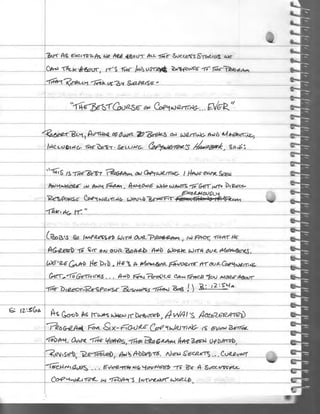 BUT AS EXCITED AS WE ARE ABOUT ALL THE SUCCESS STORIES WE
CAN TALK ABOUT, IT'S THE INDUSTRY RESPONSE TO THE PROGRAM
THAT REALLY TOOK US BY SURPRISE.
"THE BEST COURSE ON COPYWRITING... EVER"
ROBERT BLY, AUTHOR OF OVER BOOKS ON WRITING AND MARKETING,
INCLUDING THE BEST-SELLING COPYWRITER'S HANDBOOK, SAID:
"THIS IS THE BEST PROGRAM ON COPYWRITING I HAVE EVER SEEN
ANYWHERE IN ANY FORM. ANYONE WHO WANTS TO GET INTO DIRECT
ENORMOUSLY
RESPONSE COPYWRITING WOULD BENEFIT FROM
TAKING IT."
(BOB'S SO IMPRESSED WITH OUR PROGRAM, IN FACT, THAT HE
AGREED TO SIT ON OUR BOARD AND WORK WITH OUR MEMBERS.
WE'RE GLAD HE DID. HE'S A MEMBER FAVORITE AT OUR COPYWRITING
GET-TOGETHERS... AND FEW PEOPLE CAN TEACH YOU MORE ABOUT
THE DIRECT-RESPONSE BUSINESS THAN BOB!) B: 12:54A
G: 12:56A AS GOOD AS IT WAS WHEN IT DEBUTED, AWAI'S ACCELERATED
PROGRAM FOR SIX-FIGURE COPYWRITING IS EVEN BETTER
TODAY. OVER THE YEARS, THE PROGRAM HAS BEEN UPDATED,
REVISED, AND ADDED TO. NEW SECRETS... CURRENT
TECHNIQUES... EVERYTHING YOU NEED TO BE A SUCCESSFUL
COPYWRITER IN TODAY'S INTERNET WORLD.